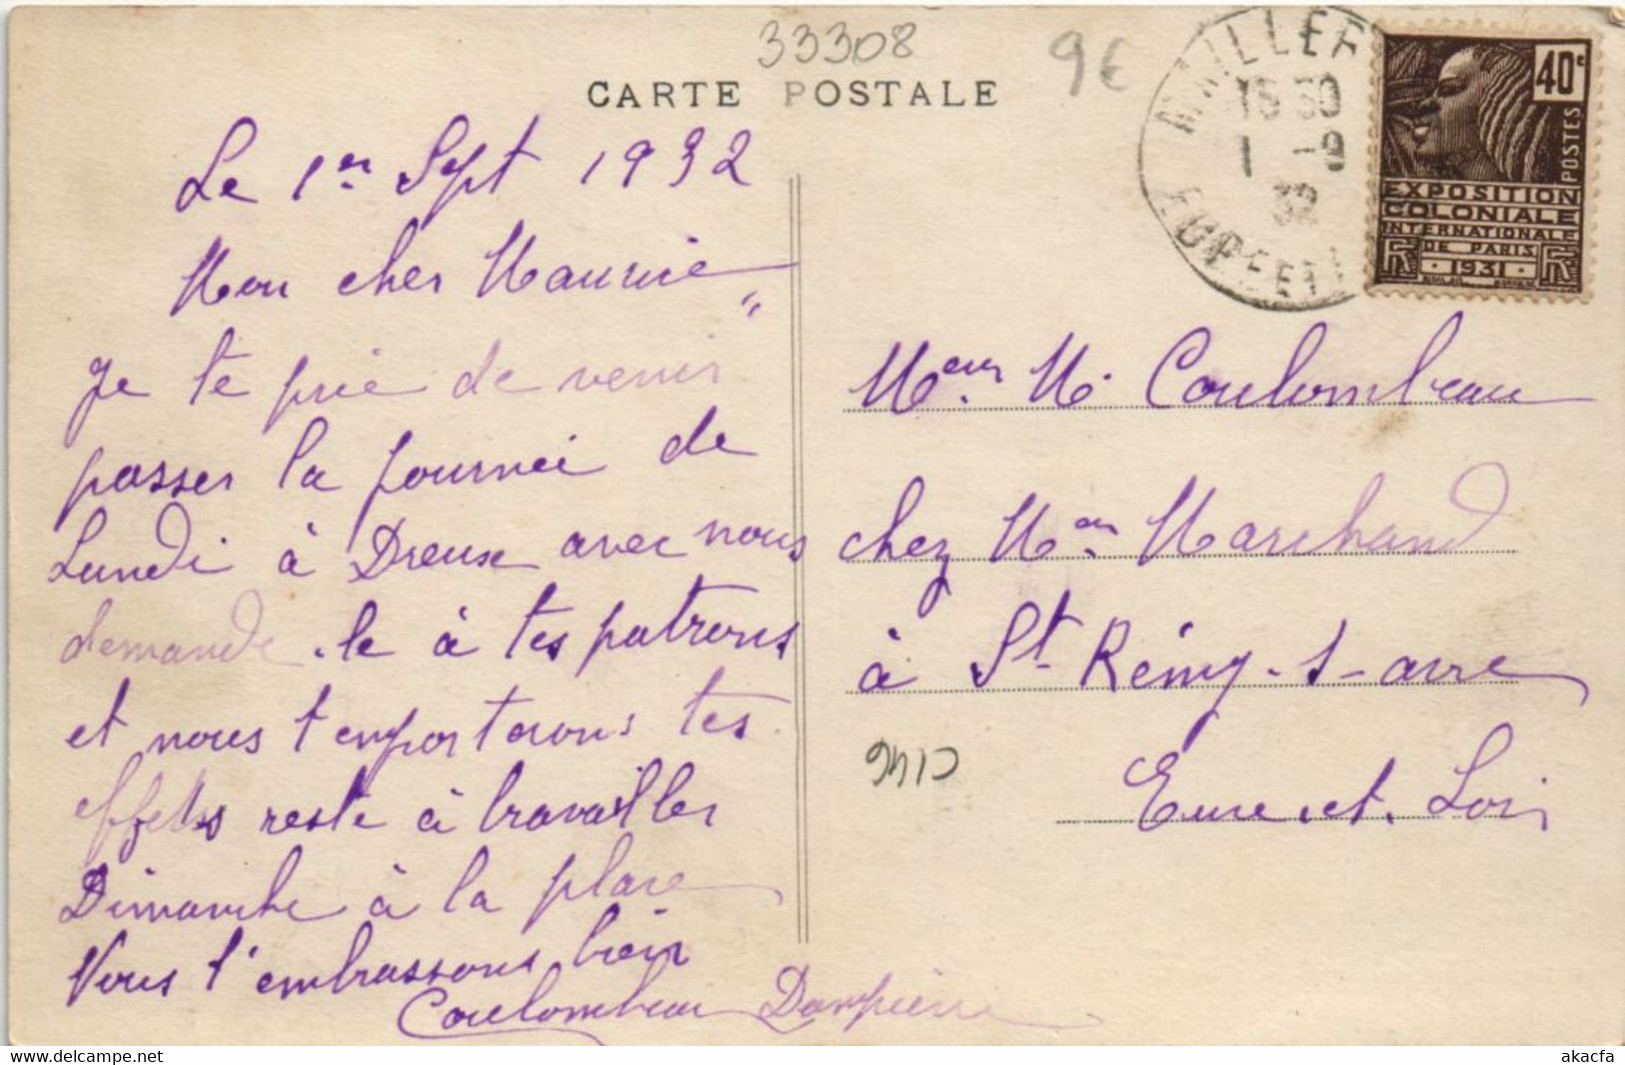 33308
9€
CARTE POSTALE
MAILLE
15 30
1 -9
32
40c
POSTES
EXPOSITION
COLONIALE
INTERNATIONALE
DE PARIS
RF · 1931 · RF
Le 1er Sept 1932
Mon cher Maurice
Je te prie de venir
passer la journée de
Lundi à Dreux avec nous
demande-le à tes patrons
et nous t'emporterons tes
effets reste à travailler
Dimanche à la place
Nous t'embrassons bien
Coulombeau Dampierre
Meur M. Coulombeau
chez Mon Marchand
à St Rémy-s-avre
Eure-et-Loir
akacfa-delcampe.net
akacfa